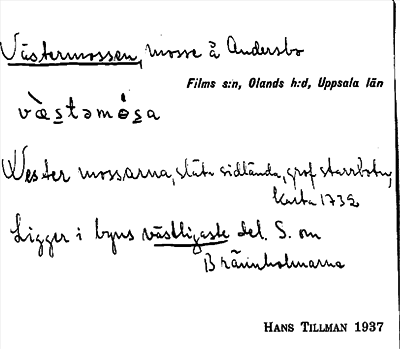 Västermossen, mosse å Andersbo
Films s:n, Olands h:d, Uppsala län
væ̀stəmósa
Wester mossarna, släta sidlända, grof starrbotn,
Karta 1739
Ligger i byns västligaste del. S. om
Brännholmarna
HANS TILLMAN 1937